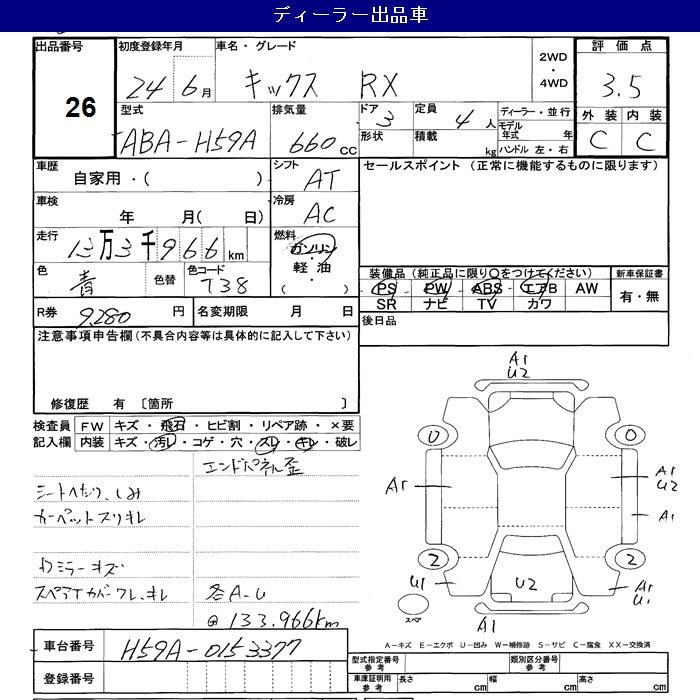 ディーラー出品車
出品番号
26
初度登録年月
24 6月
車名・グレード
キックス RX
2WD
・
4WD
評価点
3.5
外装 内装
C C
型式
ABA-H59A
排気量
660cc
ドア 3
形状
定員 4人
積載 kg
ディーラー・並行
モデル年式 年
ハンドル 左・右
車歴
自家用・( )
シフト AT
セールスポイント (正常に機能するものに限ります)
車検
年 月( 日)
冷房 AC
走行
13万3千966km
燃料
ガソリン
・
軽油
( ・ )
色 青
色替
色コード T38
装備品(純正品に限り○をつけてください)
PS PW ABS エアB AW
SR ナビ TV カワ
新車保証書
有・無
R券 9,280円
名変期限 月 日
後日品
注意事項申告欄(不具合内容等は具体的に記入して下さい)
修復歴 有 〔箇所 〕
検査員記入欄
FW キズ・飛石・ヒビ割・リペア跡・×要
内装 キズ・汚レ・コゲ・穴・スレ・キレ・破レ
エンドパネル歪
シートへたり、しみ
カーペットスリキレ
カミラーキズ
スペアTカバーワレ、キレ
各A-U
@133,966km
A1
U2
0 0
A1
A1
U2
A1
2 2
U1
U2
A1
U1
スペア
A1
A-キズ E-エクボ U-凹み W-補修跡 S-サビ C-腐食 XX-交換済
車台番号 H59A-0153377
登録番号
型式指定番号 参考
類別区分番号 参考
車庫証明用 参考
長さ cm 幅 cm 高さ cm